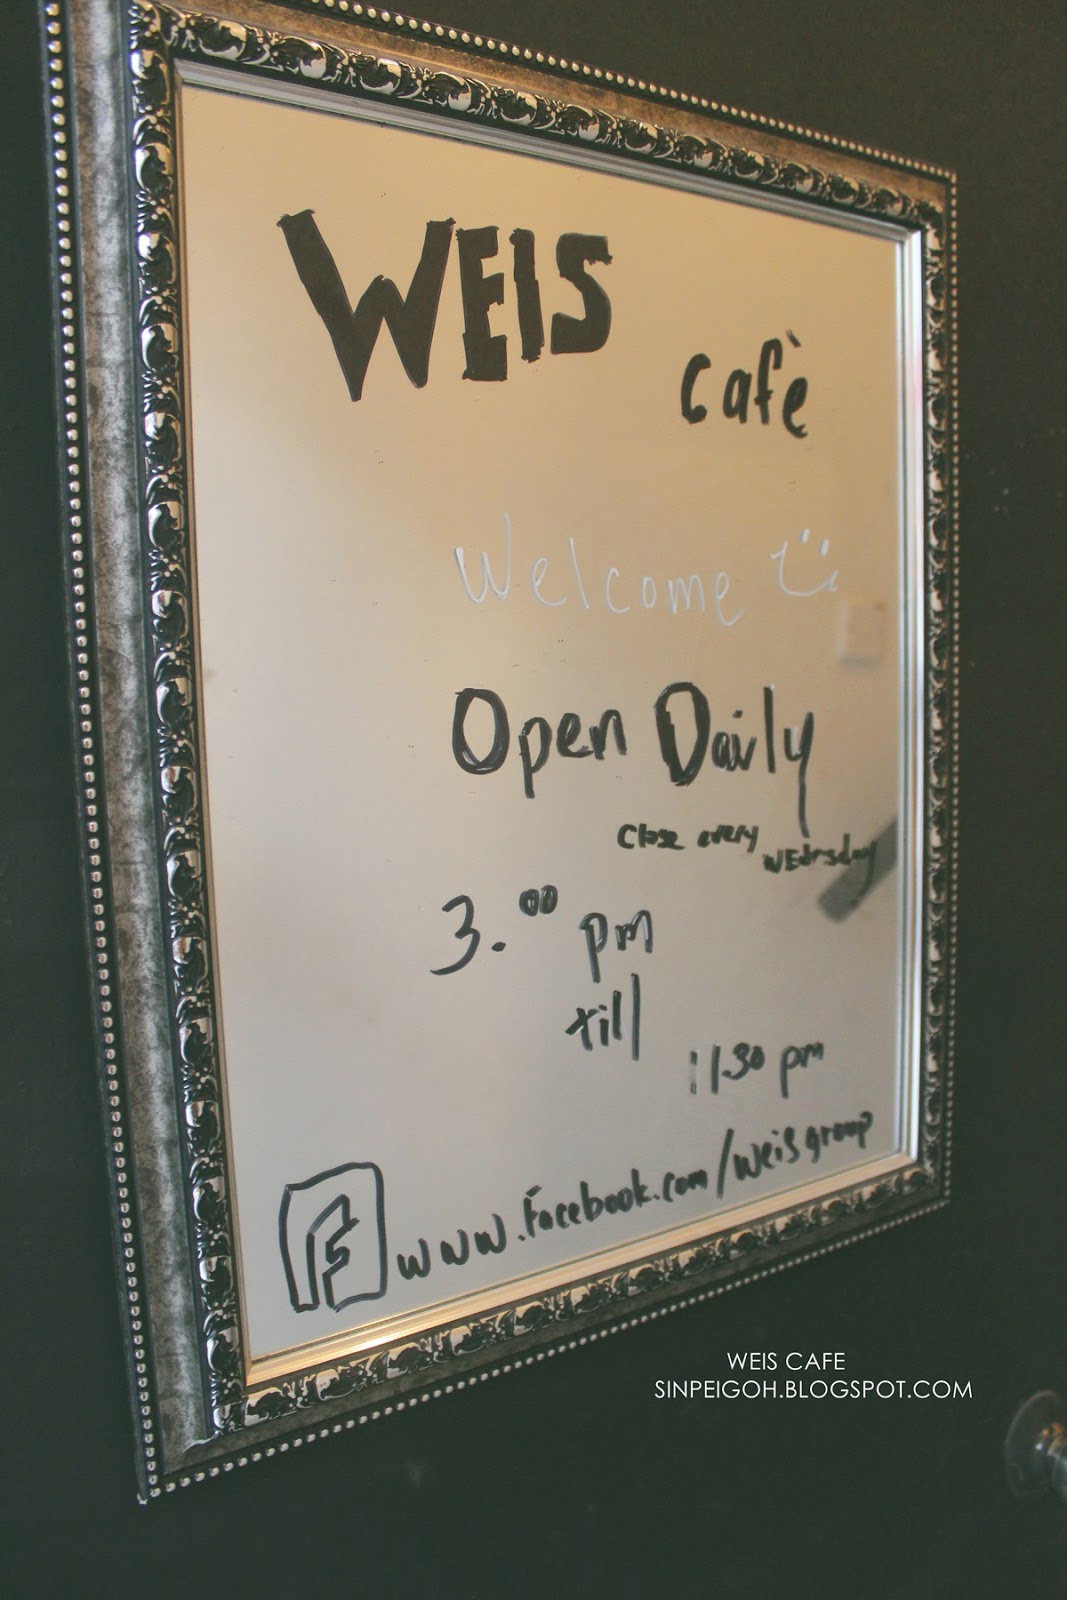 WEIS
cafè
Welcome
Open Daily
Close every
WEdnsday
3.00 pm
till
11.30 pm
f www.facebook.com/weisgroup
WEIS CAFE
SINPEIGOH.BLOGSPOT.COM